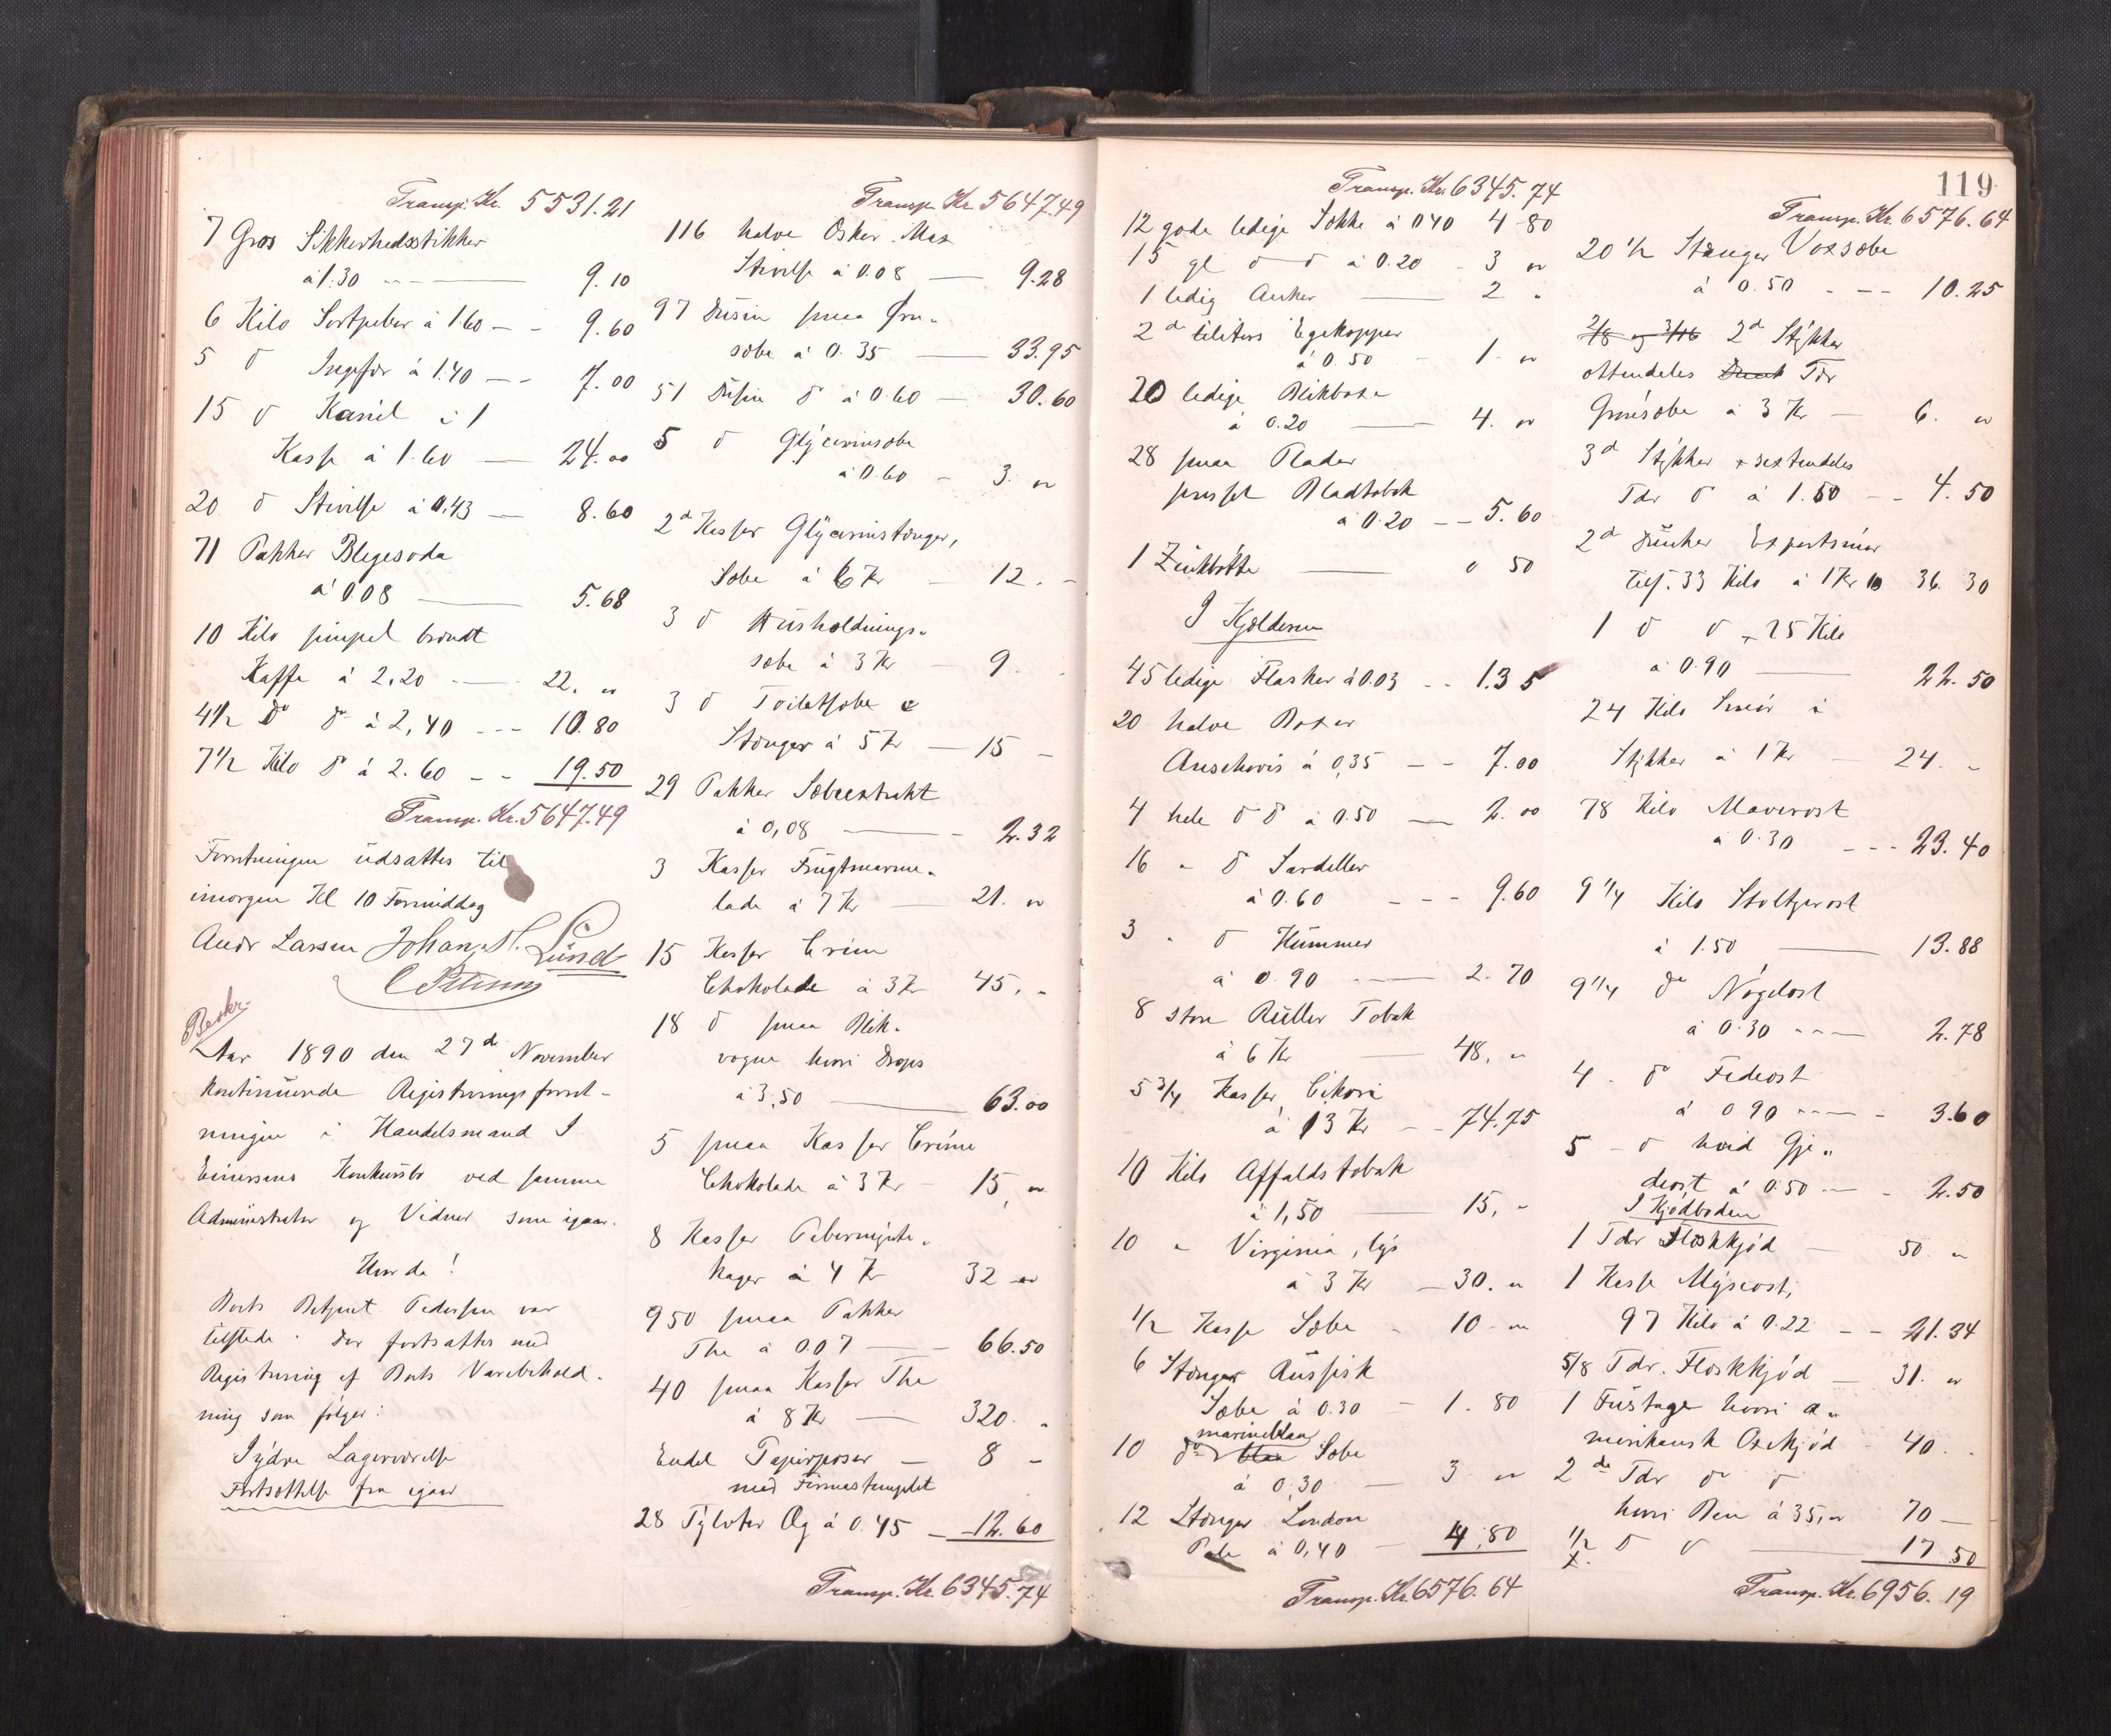 Transp. Kr. 5531.21
7 Gros Sikkerhedsstikker
à 1.30 — 9.10
6 Kilo Sortpeber à 1.60 — 9.60
5 do Ingefær à 1.40 — 7.00
15 do Kanel i 1
Kasse à 1.60 — 24.00
20 do Stivelse à 0,43 — 8.60
71 Pakker Blegesoda
à 0.08 — 5.68
10 Kilo simpel brændt
Kaffe à 2,20 — 22. "
4 1/2 do do à 2,40 — 10.80
7 1/2 Kilo do à 2.60 — 19.50
Transp. Kr. 5647.49
Forretningen udsattes til
imorgen Kl 10 Formiddag
Andr Larsen Johan N. Lund
Beskr.
Aar 1890 den 27de November
kontinuerede Registreringsforret-
ningen i Handelsmand I
Einersens Konkursbo ved samme
Administrator og Vidner som igaar.
Hvorda!
Boets Betjent Pedersen var
tilstede. Der fortsattes med
Registrering af Boets Varebehold-
ning som følger:
I ydre Lagerværelse
Fortsættelse fra igaar
Transp Kr 5647.49
116 halve Æsker Maz
Stivelse à 0.08 — 9.28
97 Dusin smaa Grøn-
sæbe à 0.35 — 33.95
51 Dusin do à 0.60 — 30.60
5 do Glycerinsæbe
à 0.60 — 3. "
2de Kasser Glycerinstænger,
Sæbe à 6 Kr — 12. -
3 do Husholdnings-
sæbe à 3 Kr — 9.
3 do Toiletsæbe
Stænger à 5 Kr — 15 -
29 Pakker Sæbeextrakt
à 0,08 — 2.32
3 Kasser Frugtmarme-
lade à 7 Kr — 21. "
15 Kasser Crème
Chokolade à 3 Kr 45. -
18 do smaa Blik-
vogne hvori Drops
à 3,50 — 63.00
5 smaa Kasser Crème
Chokolade à 3 Kr — 15, "
8 Kasser Pebermynte-
kager à 4 Kr 32 "
950 smaa Pakker
The à 0.07 — 66.50
40 smaa Kasser The
à 8 Kr — 320. "
Endel Papirposer — 8 -
med Firmastemplet
28 Tylvter Æg à 0.45 — 12.60
Transp. Kr. 6345.74
119
Transp. Kr. 6345.74
12 gode ledige Sække à 0.40 4 80
15 gl do do à 0.20 - 3 "
1 ledig Anker — 2 "
2de liters Egekopper
à 0.50 - 1 - "
20 ledige Blikbokse
à 0.20 — 4. "
28 smaa Plader
presset Bladtobak
à 0.20 — 5.60
1 Zinkbøtte — 0 50
I Kjelderen
45 ledige Flasker à 0.03 - - 1.35
20 halve Boxer
Anschovis à 0,35 — 7.00
4 hele do do à 0.50 — 2.00
16 " do Sardeller
à 0.60 - - - 9.60
3 " do Hummer
à 0.90 — 2.70
8 store Ruller Tobak
à 6 Kr — 48. "
5 3/4 Kasser Cikori
à 13 Kr — 74.75
10 Kilo Affaldstobak
à 1,50 — 15, -
10 " Virginia, lys
à 3 Kr — 30. "
1/2 Kasse Sæbe - 10 - "
6 Stænger Russisk
Sæbe à 0.30 - 1.80
marineblaa
10 do blaa Sæbe
à 0,30 — 3 "
12 Stænger London
Pale à 0,40 — 4,80
Transp. Kr. 6576.64
Transp. Kr. 6576.64
20 1/2 Stænger Voxsæbe
à 0.50 - - - 10.25
2/8 og 3/16 2de Stykker
ottendeles Tdr
Grønsæbe à 3 Kr — 6. "
3de Stykker sextendeles
Tdr do à 1.50 - - 4.50
2de Dunker Exportsmør
tils. 33 Kilo à 1 Kr 10 36.30
1 do do 25 Kilo
à 0.90 — 22.50
24 Kilo Smør i
Stykker à 1 Kr — 24. -
78 Kilo Maverost
à 0.30 - - - 23.40
9 1/4 Kilo Stoltzerost
à 1.50 — 13.88
9 1/4 do Nøgelost
à 0.30 - - - 2.78
4 - do Fedeost
à 0 90 - - - 3.60
5 - do hvid Gje-
deost à 0.50 - - 2.50
I Kjødboden
1 Tdr Flæskkjød — 50. "
1 Kasse Myseost,
97 Kilo à 0.22 - - 21.34
5/8 Tdr. Flæskkjød — 31. "
1 Fustage hvori a-
merikansk Oxekjød - 40 - -
2de Tdr do do
hvori Ben à 35, " 70 —
1/2 do do — 17.50
Transp. Kr. 6956.19